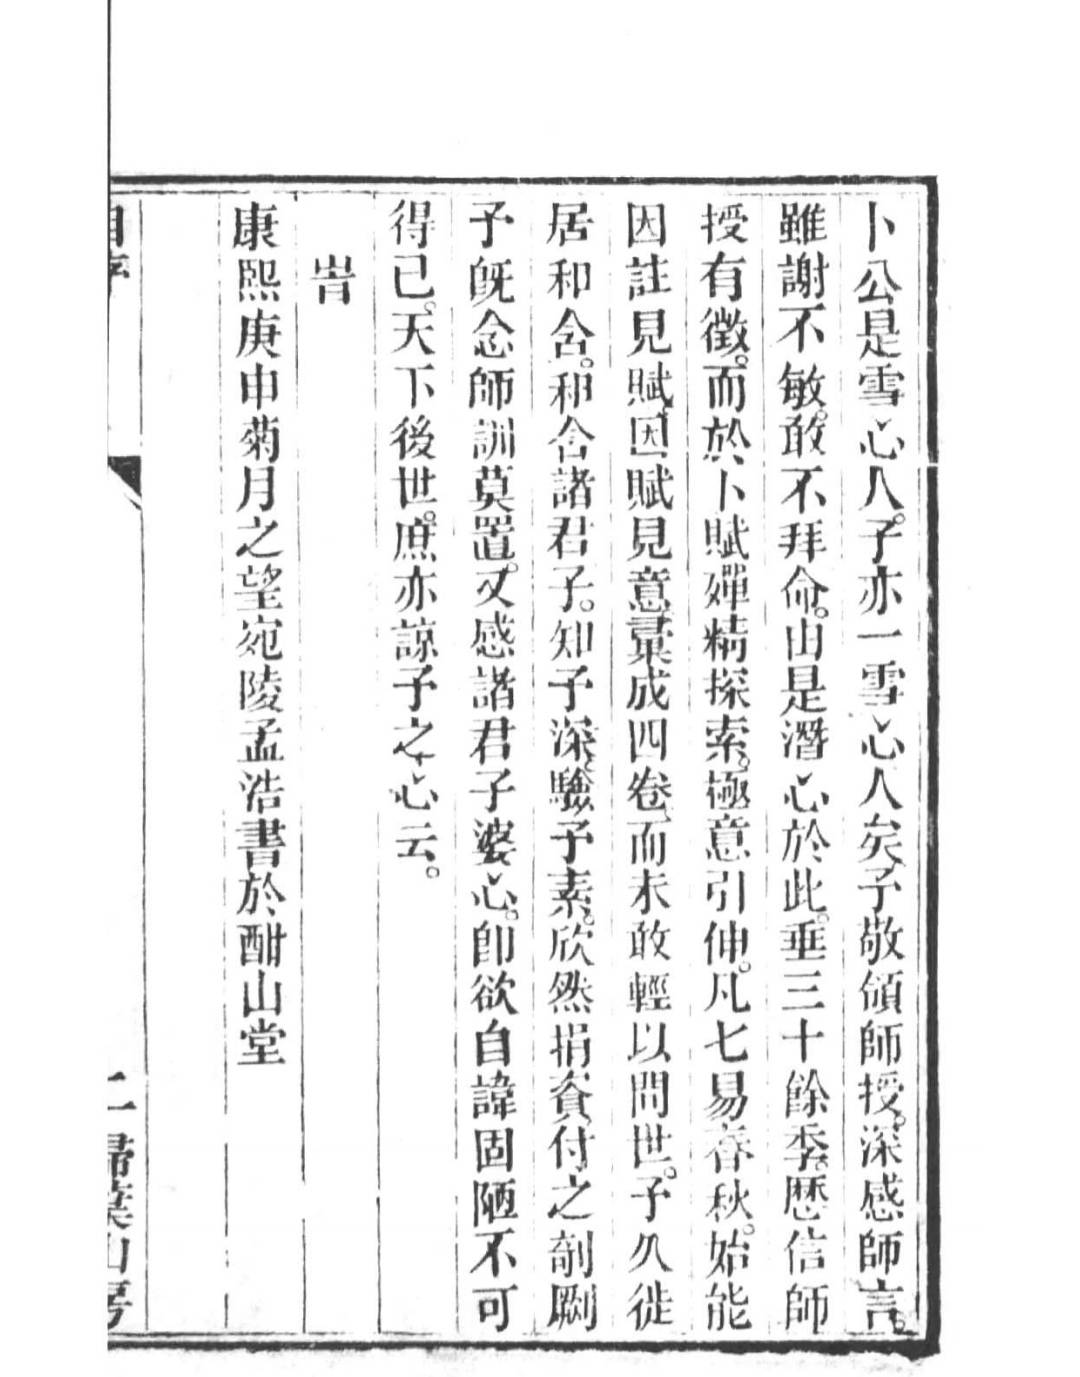 卜公是雪心人。予亦一雪心人矣。予敬領師授。深感師言。
雖謝不敏。敢不拜命。由是潛心於此。垂三十餘季。歴信師
授有徵。而於卜賦嬋精探索。極意引伸。凡七易春秋。始能
因註見賦。因賦見意。彚成四卷。而未敢輕以問世。予久徙
居和含。和含諸君子。知予深。驗予素。欣然捐資付之剞劂
予旣念師訓莫置。又感諸君子婆心。卽欲自諱固陋不可
得已。天下後世。庶亦諒予之心云。
旹
康熙庚申菊月之望宛陵孟浩書於酣山堂
自序
二掃葉山房